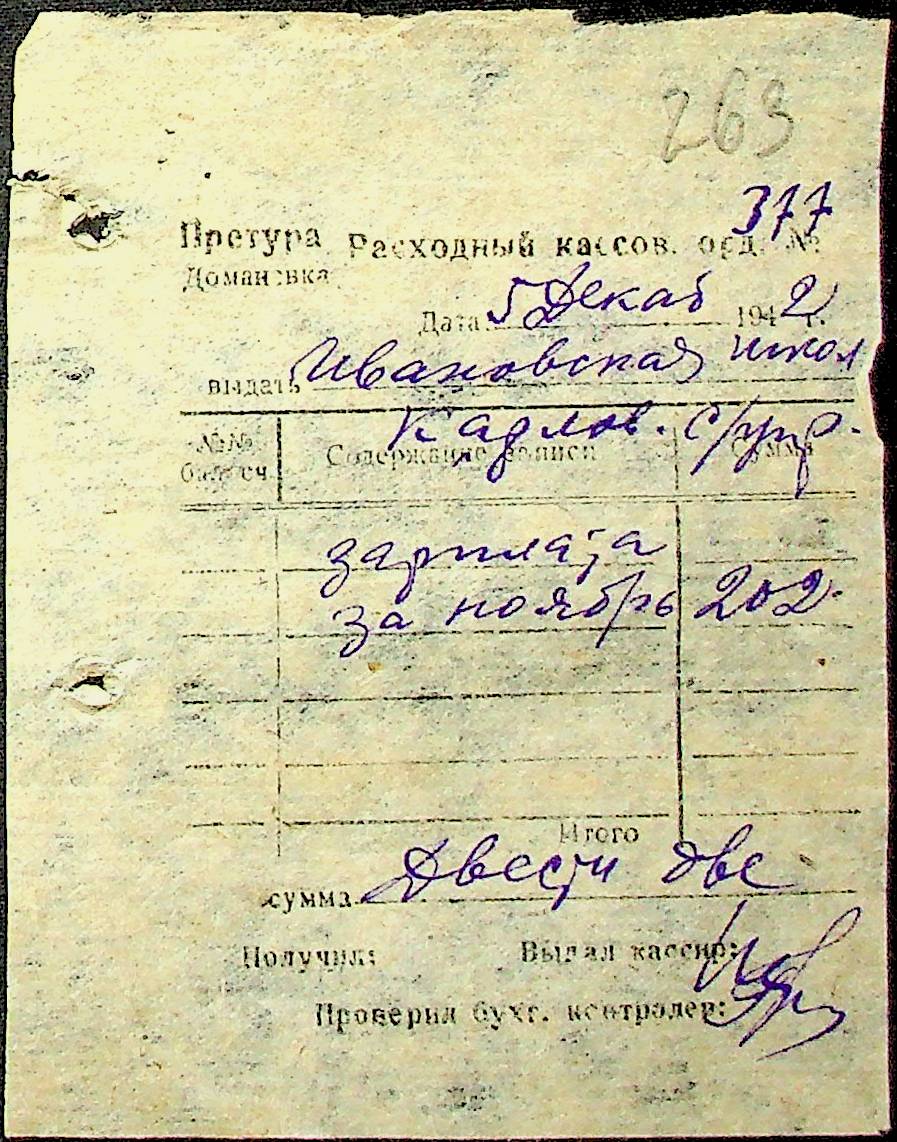 269
377
Претура Расходный кассов. орд. №
Домановка
Дата 5 Декаб 1942 г.
выдать Ивановская школ
Кадлов. с/упр.
№№ бал. сч. Содержание записи Сумма
зарплата
за ноябрь 202.
Итого
сумма Двести две
Получил: Выдал кассир:
Проверил бухг. контролер: